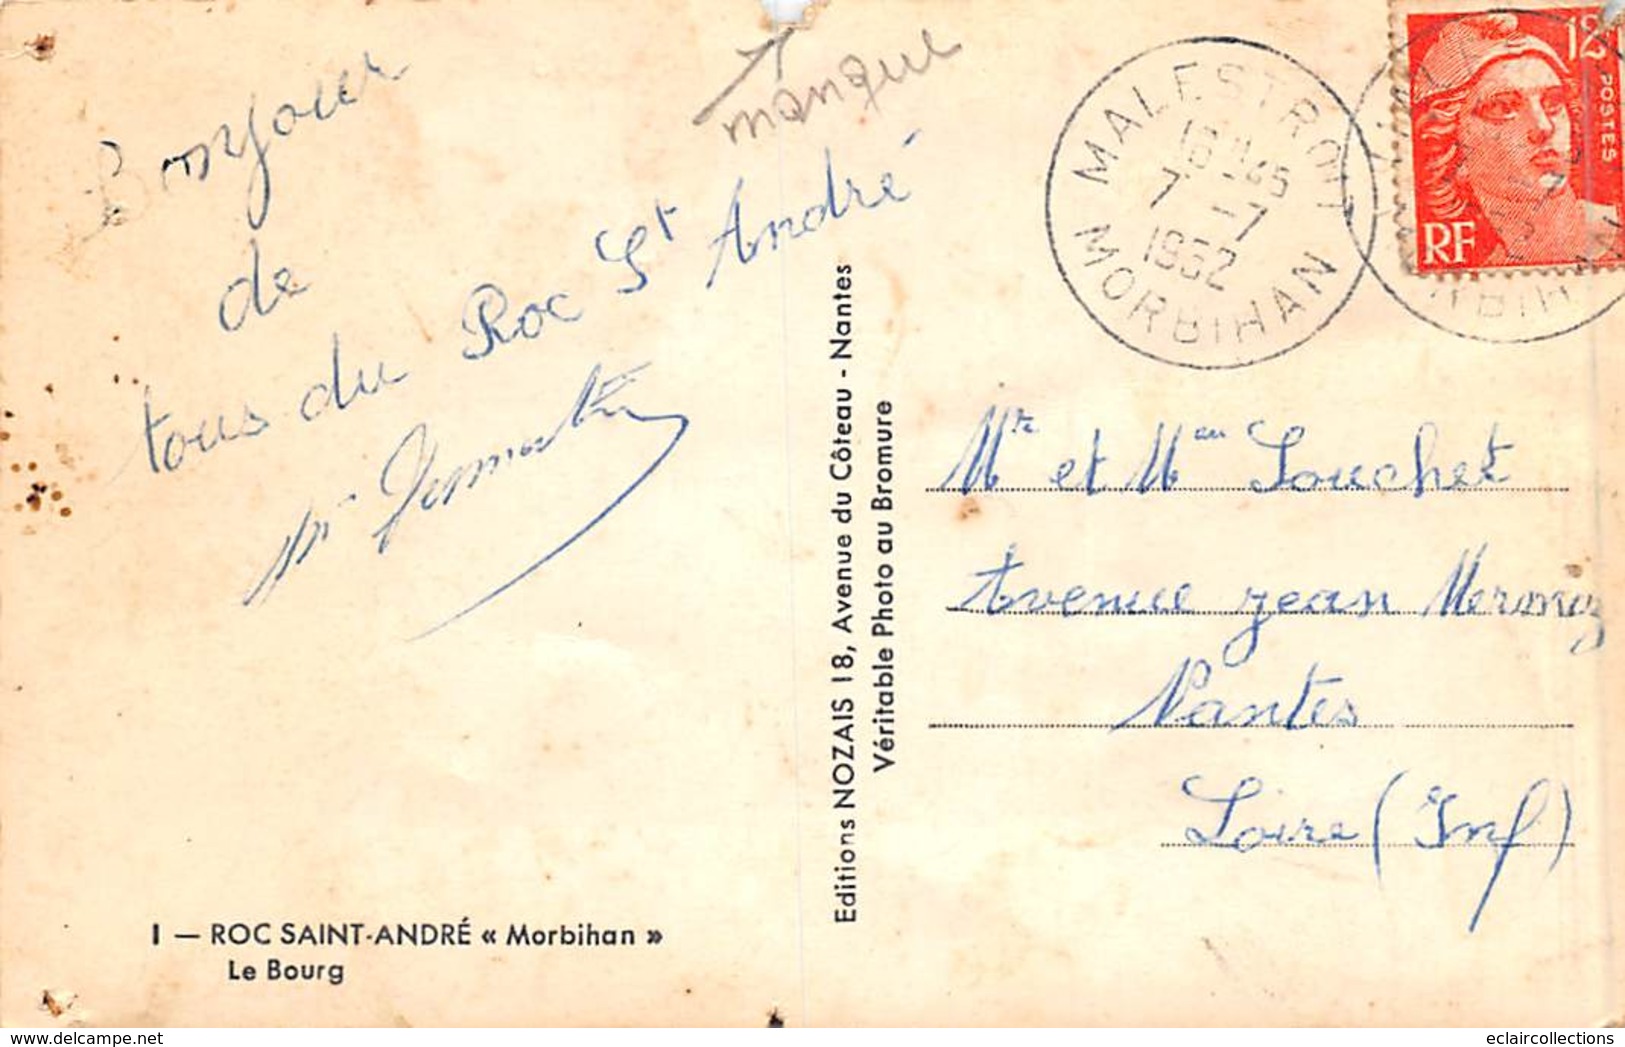 manque
Bonjour
de
tous du Roc St André
MALESTROIT
7 -7
1952
MORBIHAN
12F
POSTES
RF
Editions NOZAIS 18, Avenue du Côteau - Nantes
Véritable Photo au Bromure
et
Avenue jean Mermoz
Nantes
Loire (Inf)
I — ROC SAINT-ANDRÉ « Morbihan »
Le Bourg
delcampe.net
eclaircollections